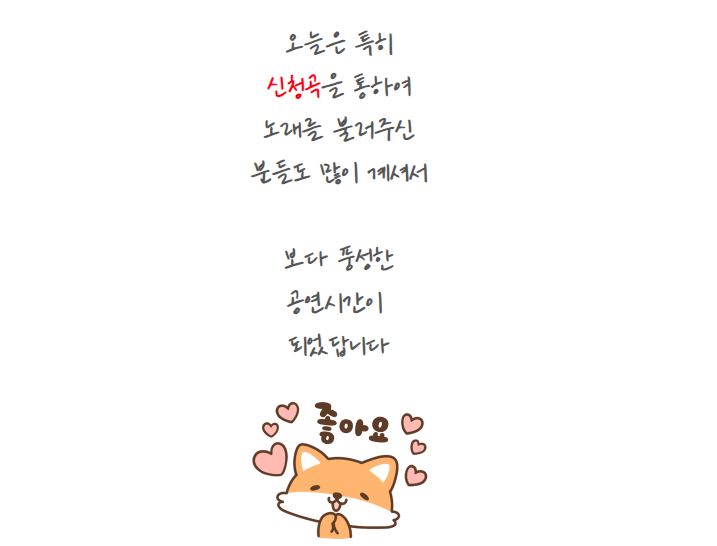 오늘은 특히
신청곡을 통하여
노래를 불러주신
분들도 많이 계셔서
보다 풍성한
공연시간이
되었답니다
좋아요